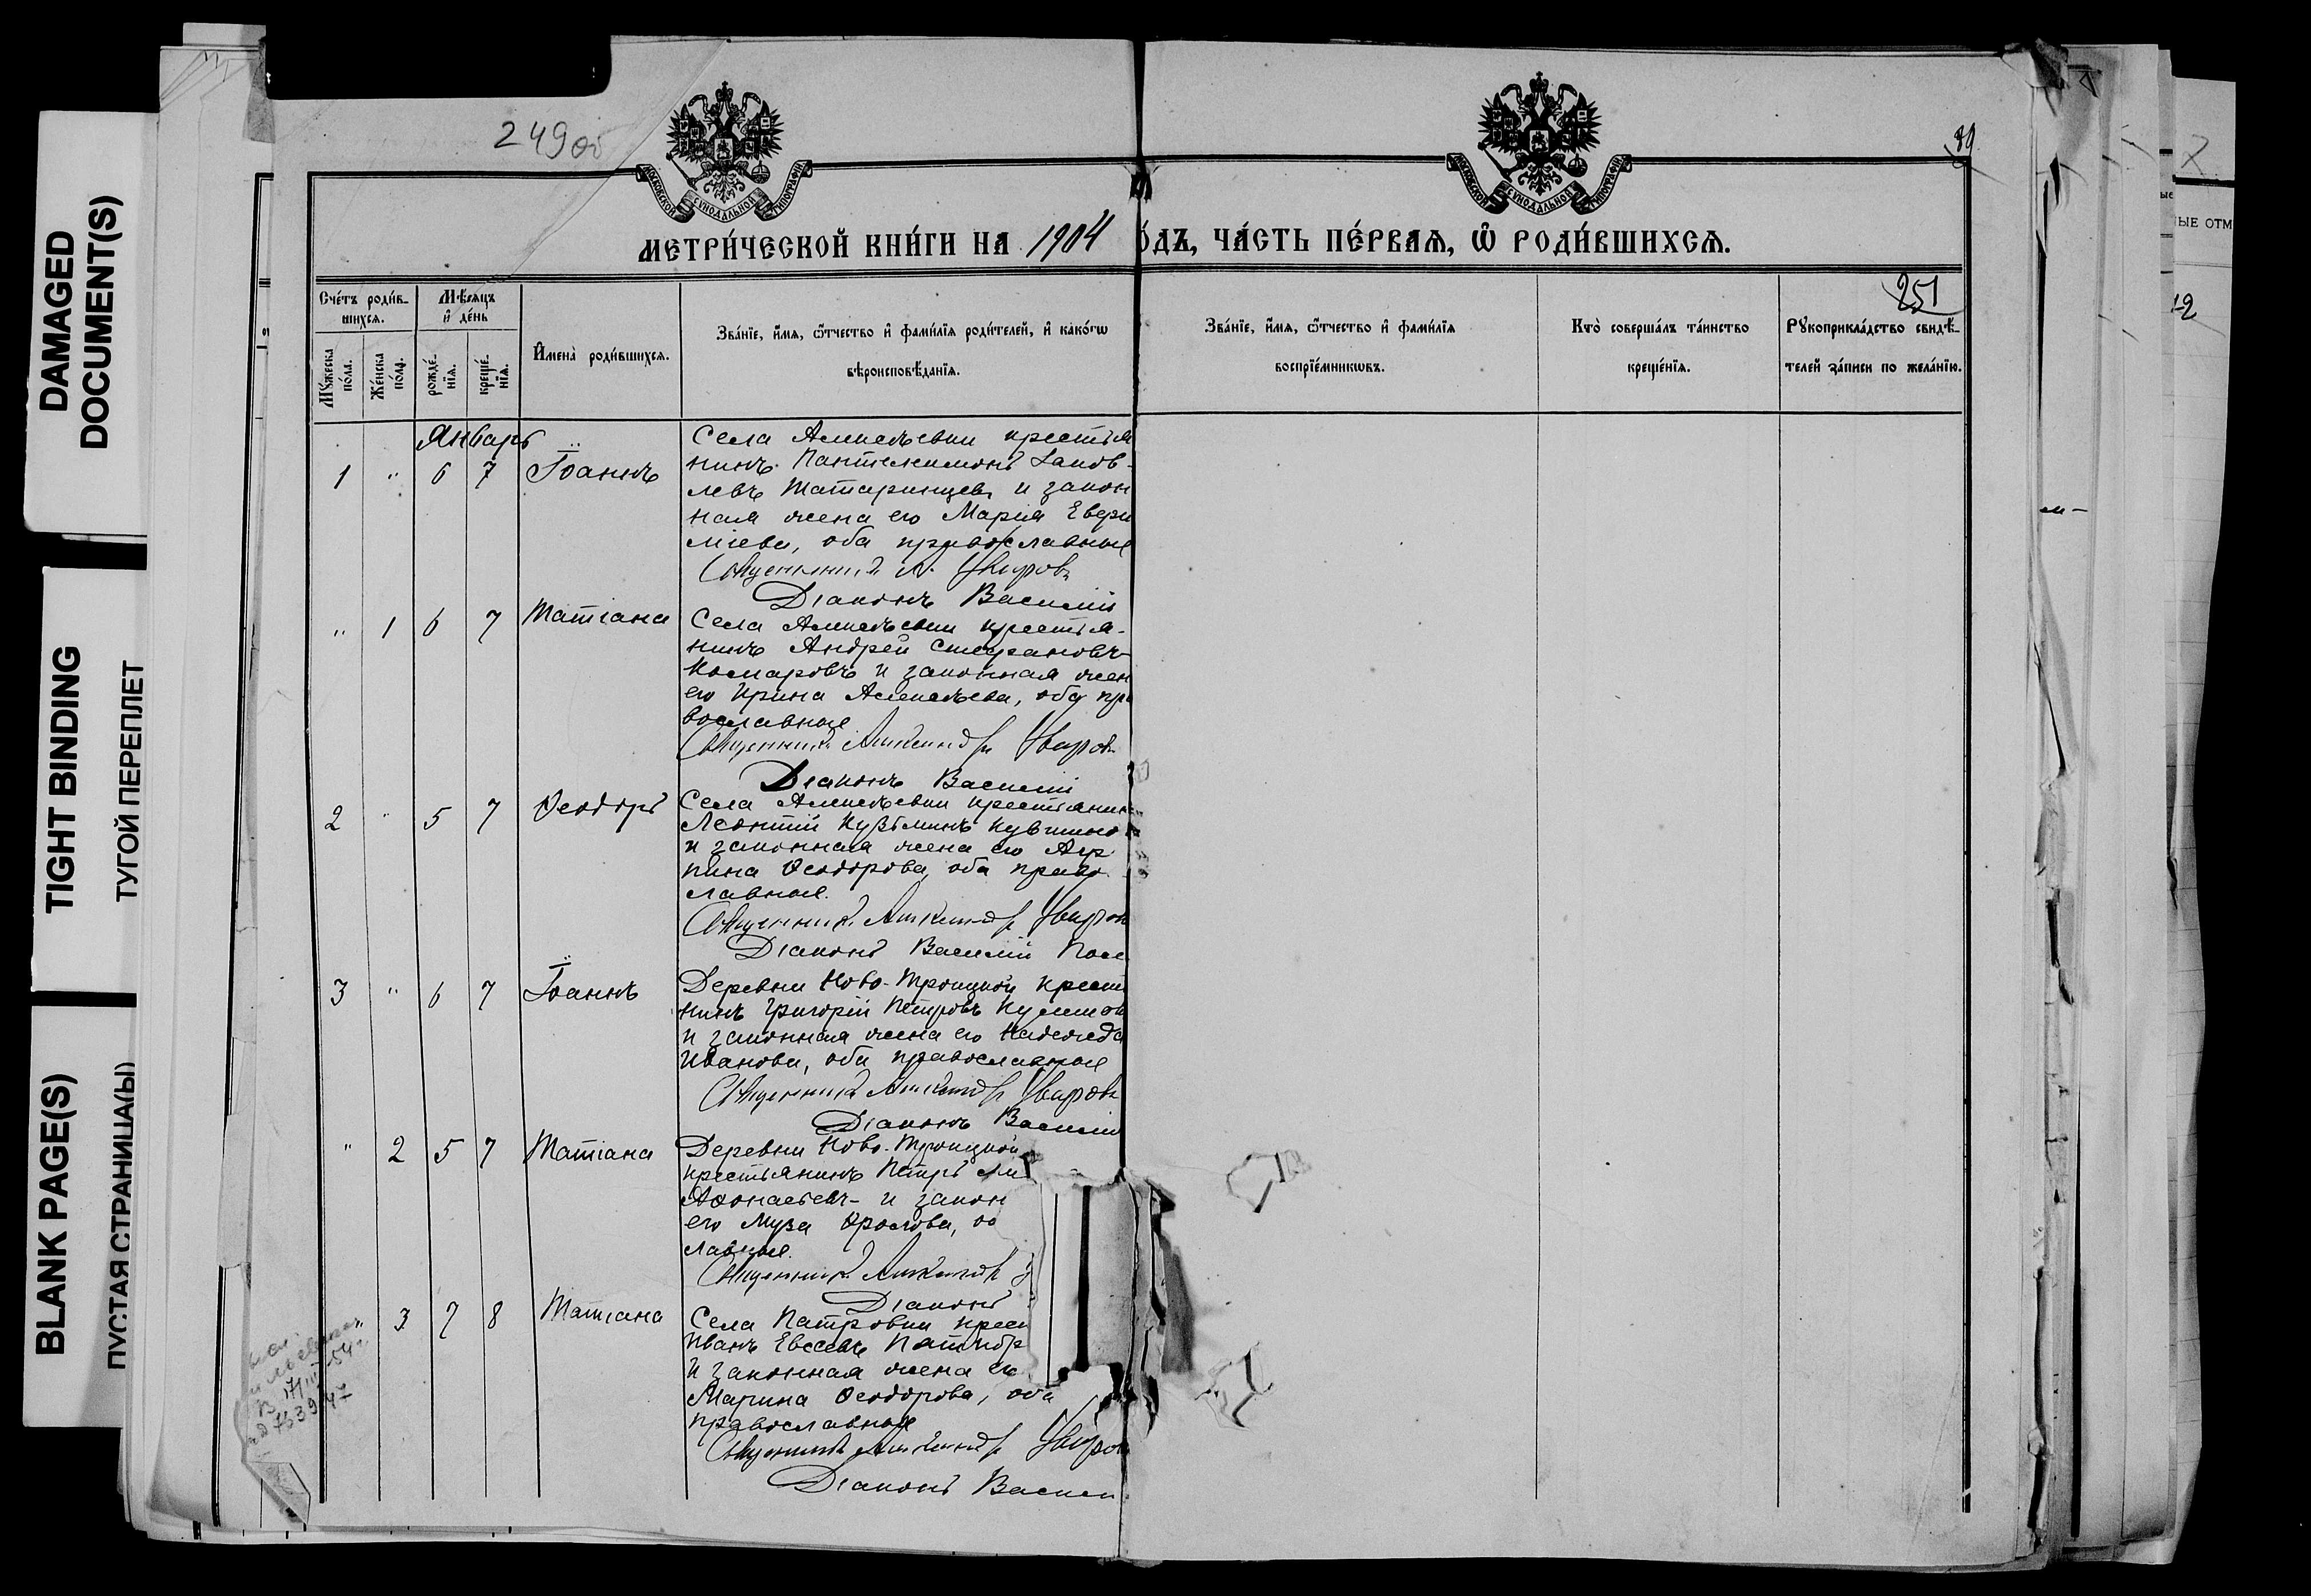 DAMAGED
DOCUMENT(S)
TIGHT BINDING
ТУГОЙ ПЕРЕПЛЕТ
BLANK PAGE(S)
ПУСТАЯ СТРАНИЦА(Ы)
249об
МОСКОВСКОЙ СУНОДАЛЬНОЙ ТИПОГРАФІИ
МОСКОВСКОЙ СУНОДАЛЬНОЙ ТИПОГРАФІИ
МЕТРИ́ЧЕСКОЙ КНИ́ГИ НА 1904 О́ДЪ, ЧА́СТЬ ПЕ́РВАѦ, Ѿ РОДИ́ВШИХСѦ.
251
Сче́тъ роди́в-
шихсѧ.
Мѣ́сѧцъ
и҆ де́нь
Мꙋ́жеска
по́ла.
Же́нска
по́ла.
рожде́-
нїѧ.
креще́-
нїѧ.
И҆мена̀ роди́вшихсѧ.
Зва́нїе, и҆́мѧ, ѻ҆́тчество и҆ фами́лїѧ роди́телей, и҆ како́гѡ
вѣроисповѣ́данїѧ.
Зва́нїе, и҆́мѧ, ѻ҆́тчество и҆ фами́лїѧ
воспрїе́мникѡвъ.
Кто̀ соверша́лъ та́инство
креще́нїѧ.
Рꙋкоприкла́дство свидѣ́-
телей за́писи по жела́нїю.
Январь
1 " 6 7 Іоаннъ
Села крестья
нинъ Пантелеимонъ Іаков-
левъ Татаринцевъ и закон
ная жена его Марія
оба православные
Священникъ А. Уваровъ
Діаконъ Василій
" 1 6 7 Татіана
Села крестья-
нинъ Андрей Стефановъ
Комаровъ и законная жен
его Ирина оба пра
вославные
Священникъ Александръ Уваровъ
Діаконъ Василій
2 " 5 7 Ѳеодоръ
Села крестьянинъ
Леонтій Кузьминъ
и законная жена его Агр
пина Ѳеодорова, оба право
славные.
Священникъ Александръ Уваровъ
Діаконъ Василій
3 " 6 7 Іоаннъ
Деревни Ново-Троицкой крест
нинъ Григорій Петровъ
и законная жена его Надежда
Иванова, оба православные
Священникъ Александръ Уваровъ
Діаконъ Василій
" 2 5 7 Татіана
Деревни Ново-Троицкой
крестьянинъ Петръ
Аѳонасьевъ и закон
его Муза Фролова, об
славные.
Священникъ Александръ У
Діаконъ
" 3 7 8 Татіана
Села Патровки крест
Иванъ Евсеевъ
и законная жена его
Марина Ѳеодорова, оба
православные
Священникъ Александръ Уваров
Діаконъ Васил
ЫЕ ОТМ